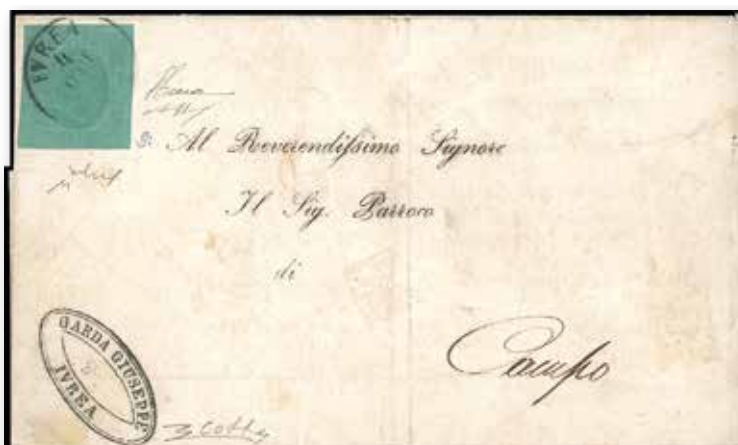 IVREA
11
Al Reverendissimo Signore
Il Sig. Parroco
di
Campo
GARDA GIUSEPPE
IVREA